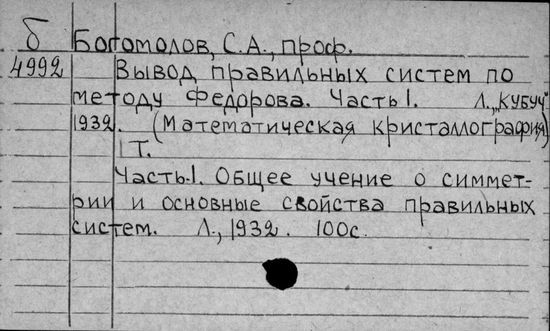 Б Богомолов, С.А., проф.
4992 Вывод правильных систем по
методу Федорова. Часть 1. Л., „КУБУЧ"
1932. (Математическая кристаллография)
1 т.
Часть 1. Общее учение о симмет-
рии и основные свойства правильных
систем. Л., 1932. 100с.